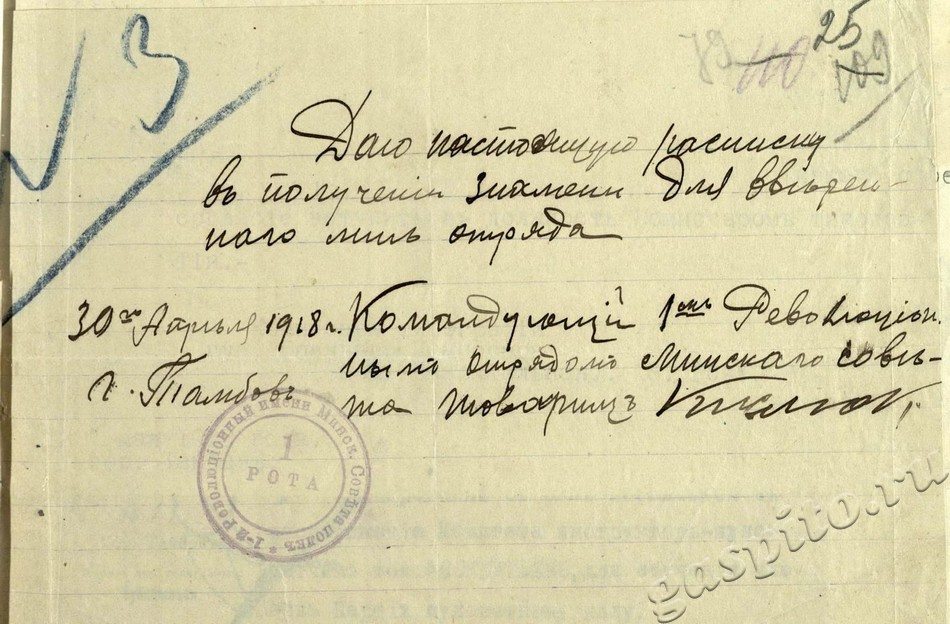 № 3
79 110 25
109
Даю настоящую расписку
въ полученіи знамени для ввѣрен-
наго мнѣ отряда
30го Апрѣля 1918 г. Командующій 1ымъ Революціон.
нымъ отрядомъ Минскаго совѣ-
г. Тамбовъ
та товарищъ
1-й Революціонный имени Минск. Совѣта полкъ *
1
РОТА
gaspito.ru